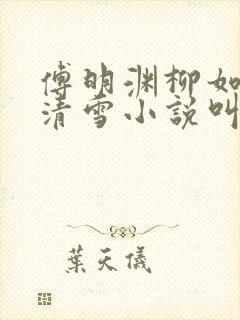 傅明渊柳如
清雪小说叫
葉天儀